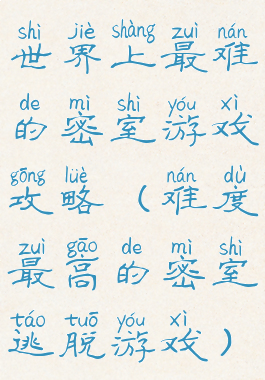 shì jiè shàng zuì nán
世界上最难
de mì shì yóu xì
的密室游戏
gōng lüè nán dù
攻略（难度
zuì gāo de mì shì
最高的密室
táo tuō yóu xì
逃脱游戏）